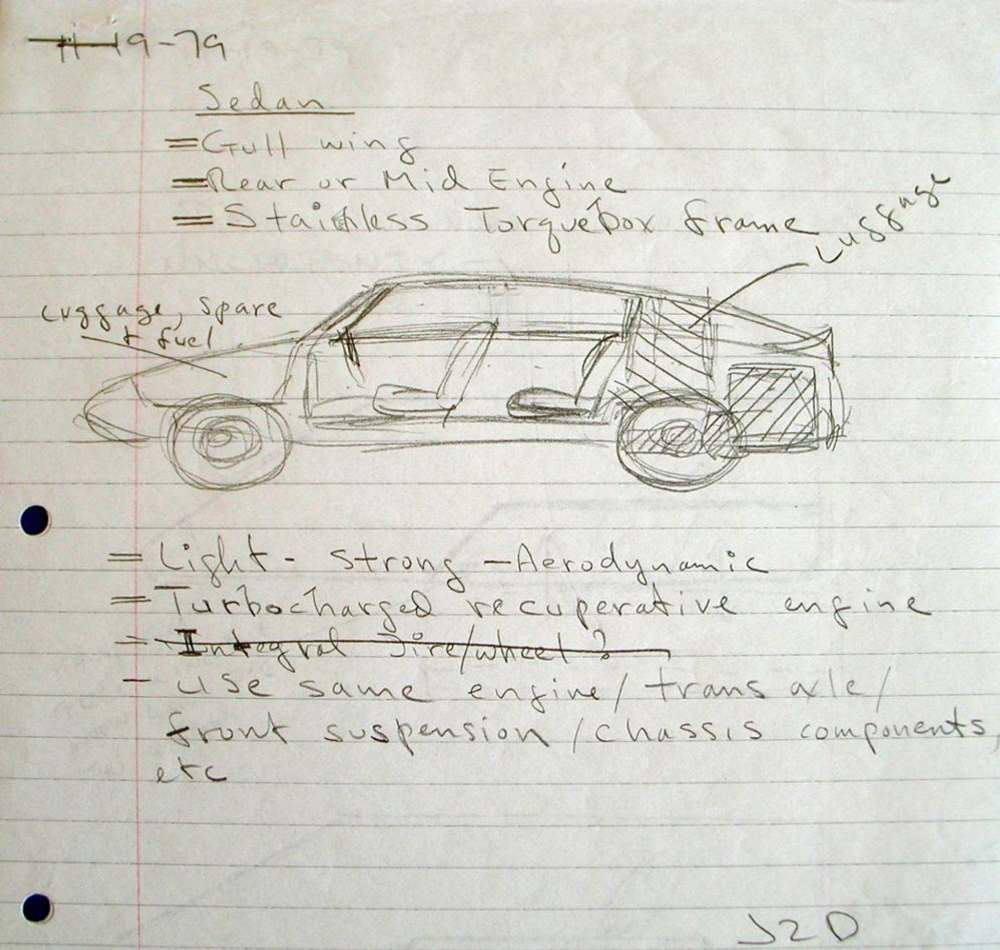 11-19-79
Sedan
= Gull wing
= Rear or Mid Engine
= Stainless Torquebox frame
Luggage
Luggage, spare
+ fuel
= Light - strong - Aerodynamic
= Turbocharged recuperative engine
- Integral Tire/wheel?
- Use same engine/transaxle/
front suspension/chassis components,
etc